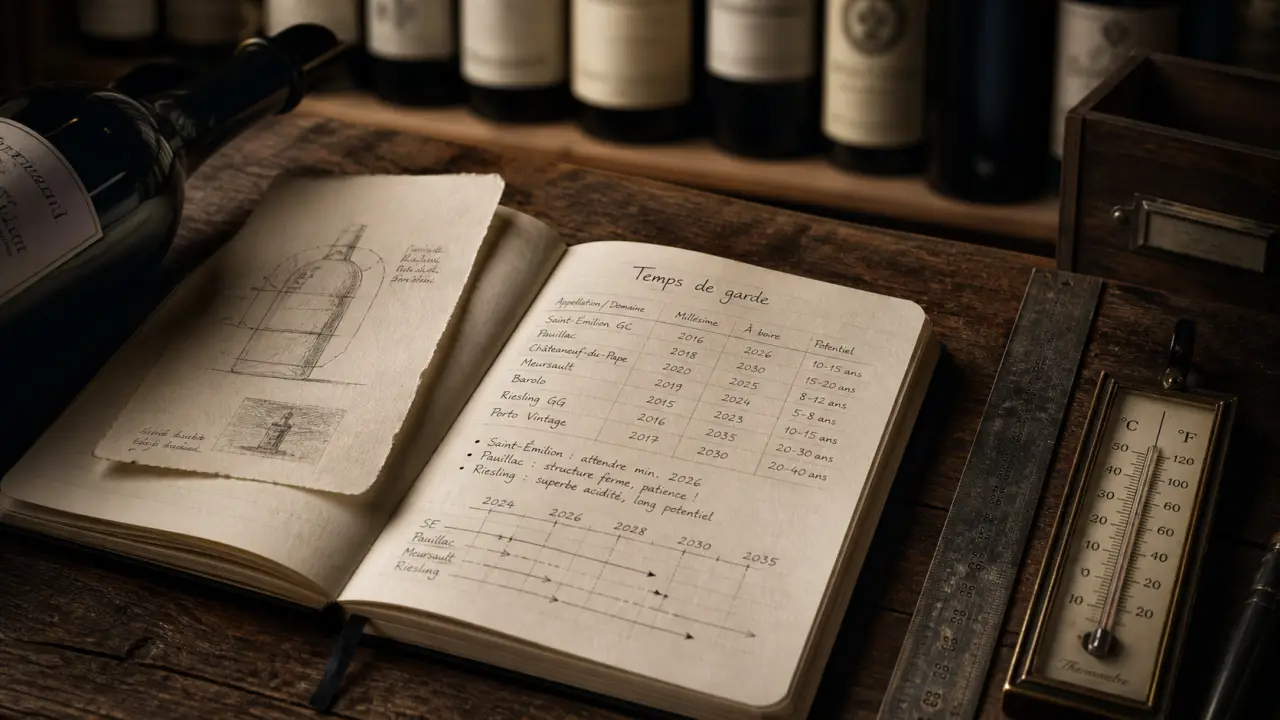 Temps de garde
Appellation/Domaine Millésime À boire Potentiel
Saint-Émilion GC 2016 2026 10-15 ans
Pauillac 2018 2030 15-20 ans
Châteauneuf-du-Pape 2020 2025 8-12 ans
Meursault 2019 2024 5-8 ans
Barolo 2015 2023 10-15 ans
Riesling GG 2016 2035 20-30 ans
Porto Vintage 2017 2030 20-40 ans
• Saint-Émilion : attendre min. 2026
• Pauillac : structure ferme, patience !
• Riesling : superbe acidité, long potentiel
2024 2026 2028 2030 2035
SE
Pauillac
Meursault
Riesling
°C °F
50 120
40 100
30 60
20 60
10 40
20 20
10 20